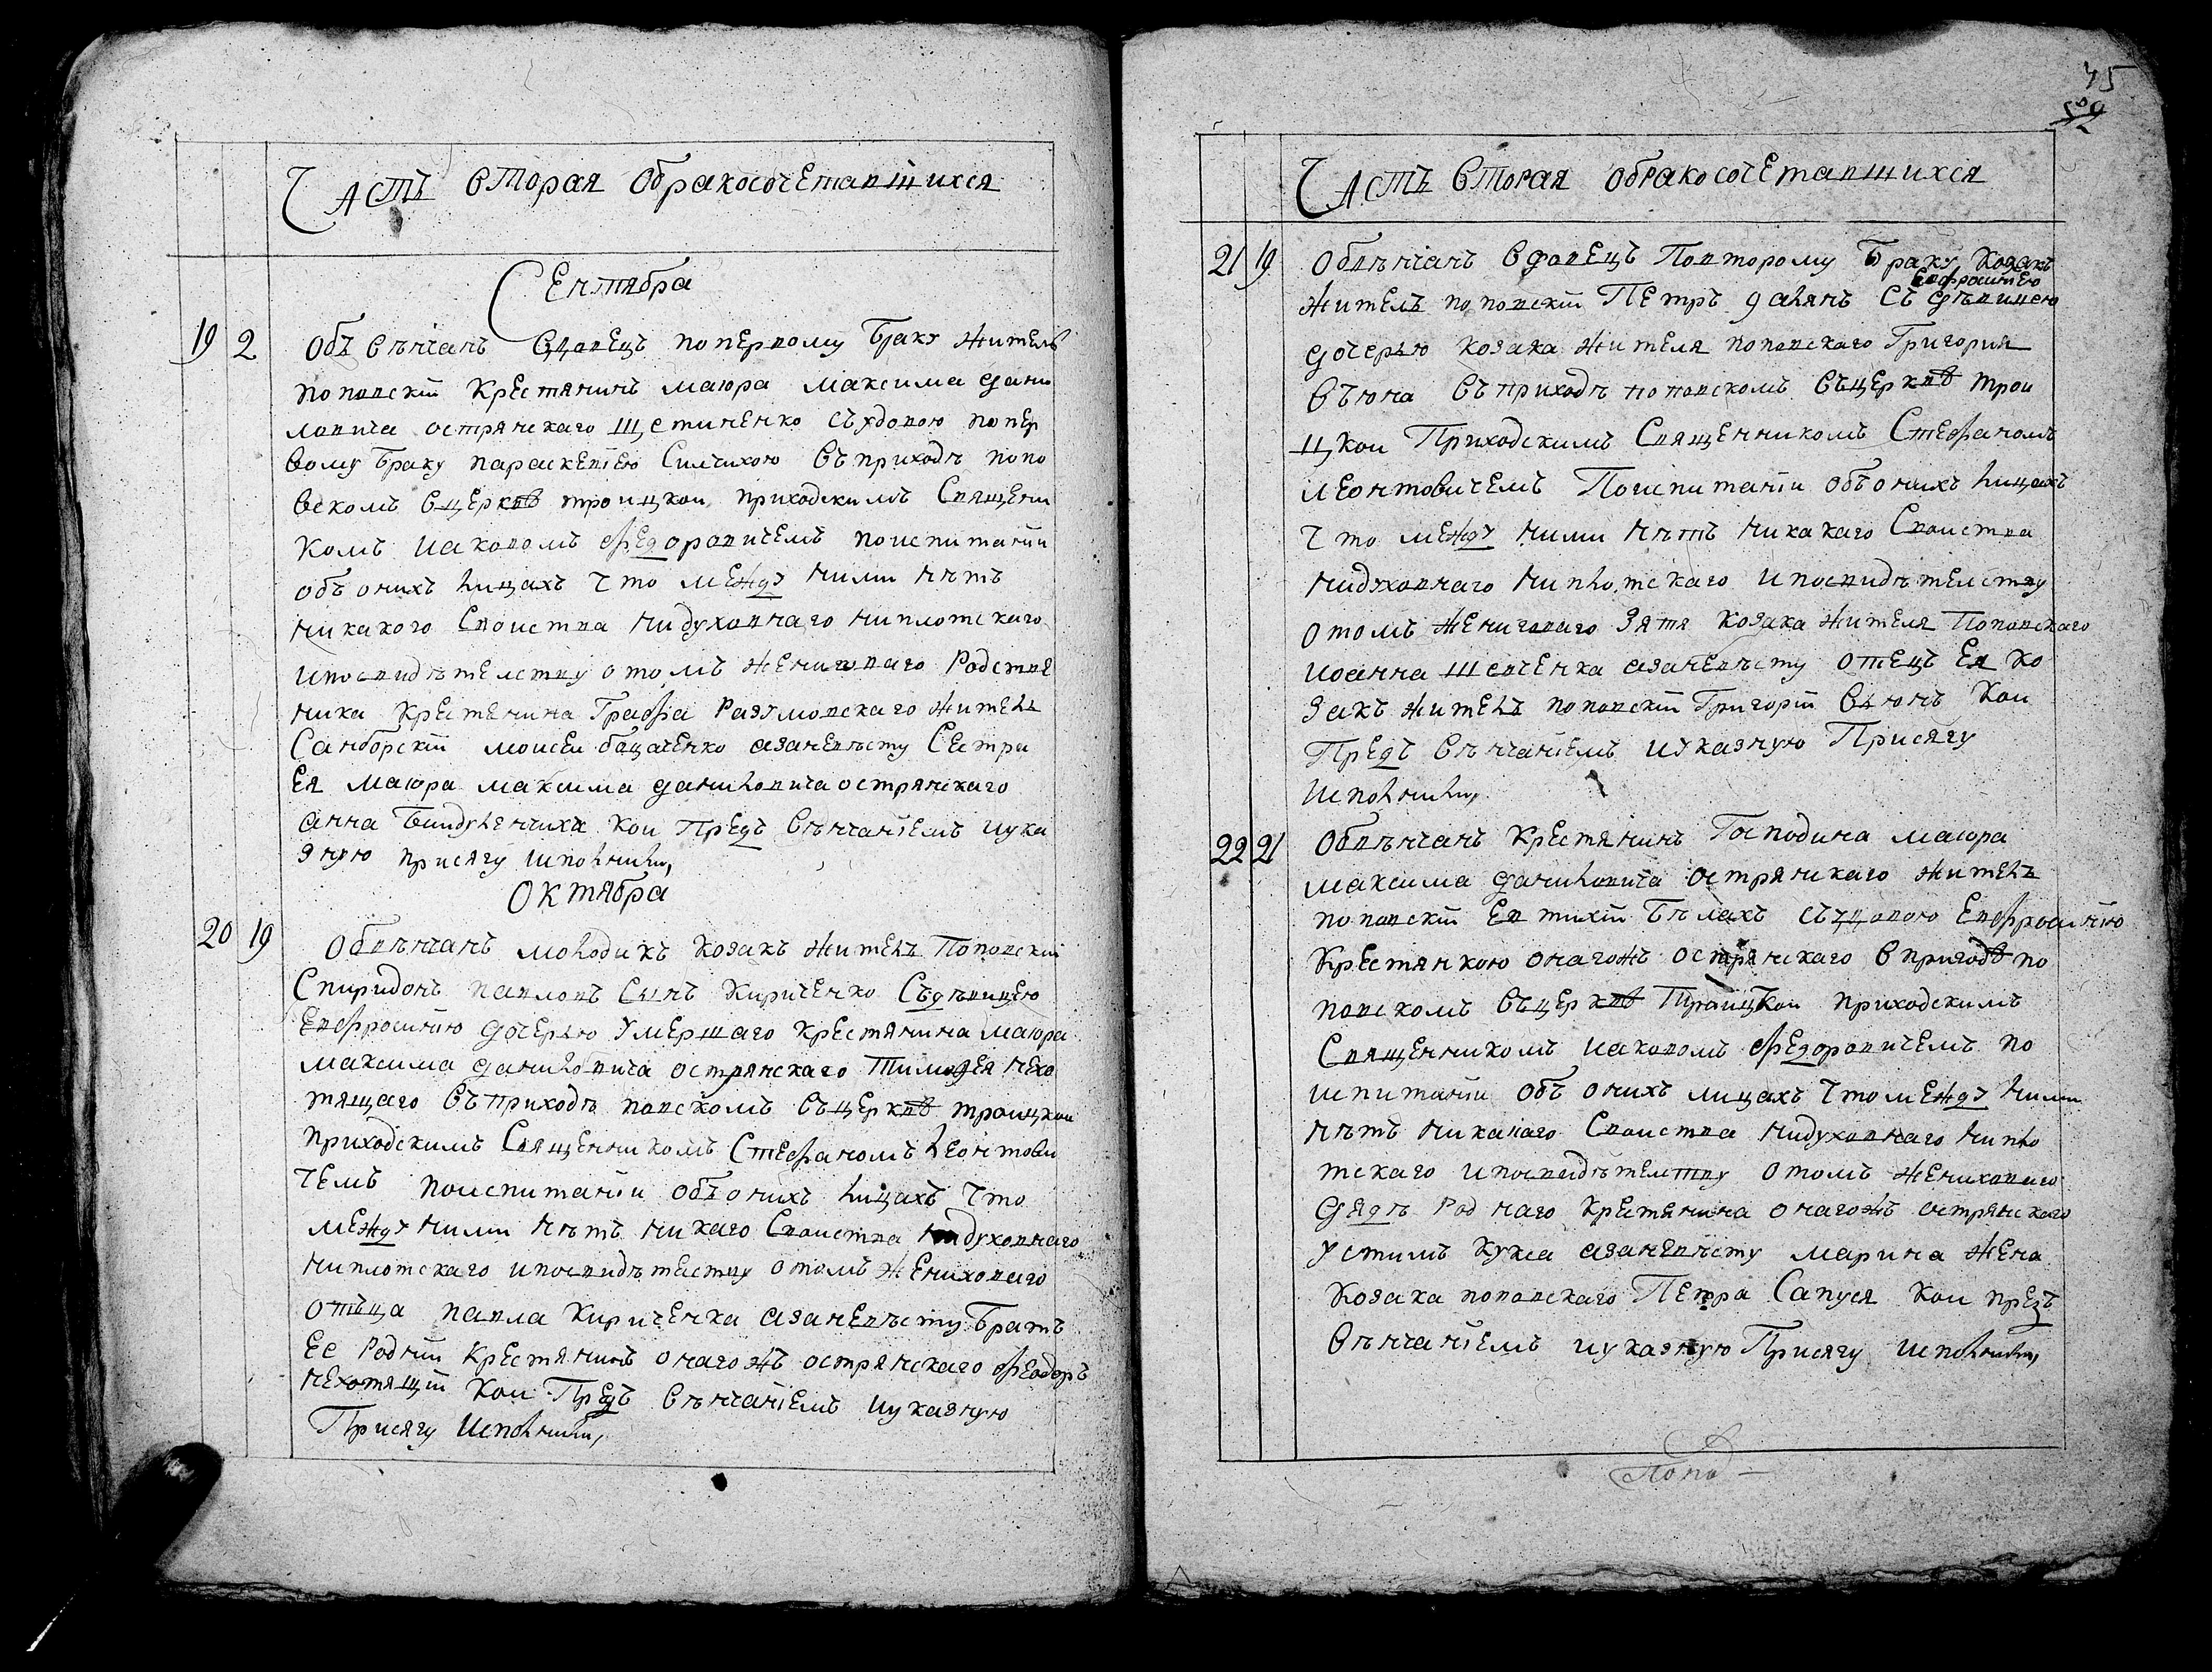 Часть вторая обракосочетавшихся
Сентября
19 2 Объ вѣнчанъ вдовецъ поперво​му браку житель
поповскій крестянинъ маюра максима дани
ловича острянскаго щетиненко съ удовою попер
вому браку параскевіею Симчихою въприходѣ попо
вскомъ вцерквѣ троицкои приходскимъ Священи
комъ иаковомъ федоровичемъ поиспитаніи
объ онихъ лицахъ что между ними нѣтъ
никакого своиства нидуховнаго ниплотскаго
ипосвидѣтелству отомъ жениговаго Родстве
ника крестянина Графа Разумовскаго жителъ
Самборскій моисеи бацаченко азаневѣсту Сестри
Ея маюра максима даниловича острянскаго
анна биндуленчиха кои предъ вѣнчаніемъ иука
зную присягу исполнили,
Октября
20 19 Обвѣнчанъ молодикъ козакъ жителъ Поповскій
Спиридонъ павловъ Синъ Киричѣнко Съдѣвицею
Евфросинію дочерью Умершаго крестянина маюра
максима даниловича острянскаго Тимофея нехо
тящаго въприходѣ повскомъ въцерквѣ троицкои
приходскимъ Священникомъ Стефаномъ леонтови
чемъ поиспитаніи объонихъ лицахъ что
между ними нѣтъ никаго Своиства нидуховнаго
ниплотскаго ипосвидѣтелству отомъ жениховаго
отъца павла Киричѣнка азаневѣсту Братъ
ее Родній крестянинъ онагожъ острянскаго феодоръ
нехотящій кои Предъ вѣнчаніемъ иуказную
Присягу Исполнили,
45
509
Часть вторая обракосочетавшихся
21 19 Обвѣнчанъ вдовецъ Повторому Браку Козакъ
Евфросинѣю
жителъ поповскій Петръ далянъ съ дѣвицею
дочерью козака жителя поповскаго Григория
Вьюна въприходѣ поповскомъ въцерквѣ трои
цкои Приходскимъ Священникомъ Стефаномъ
леонтовичемъ Поиспитаніи объонихъ лицахъ
что между ними нѣтъ никакаго Своиства
нидуховнаго ниплотскаго ипосвидѣтелству
отомъ жениговаго Зятя козака жителя Поповскаго
иоанна шевченка азаневѣсту отецъ Ея ко
закъ жителъ поповскій Григорій Вьюнъ кои
Предъ вѣнчаніемъ иуказную Присягу
исполнили,
22 21 Обвѣнчанъ крестянинъ Господина маюра
максима даниловича острянскаго жителъ
поповскій Евтихій Бѣлахъ съ удовою Евфросинію
крестянкою онагожъ острянскаго вприходѣ по
повскомъ въцерквѣ Троицкои приходскимъ
Священникомъ иаковомъ федоровичемъ по
испитаніи объ онихъ лицахъ что между ними
нѣтъ никакаго Своиства нидуховнаго нипло
тскаго ипосвидѣтелству отомъ жениховаго
дядѣ Роднаго крестянина онагожъ острянскаго
Устимъ Кукса азаневѣсту марина жена
козака поповскаго Петра Сапуся кои предъ
вѣнчаніемъ иуказную Присягу исполнили,